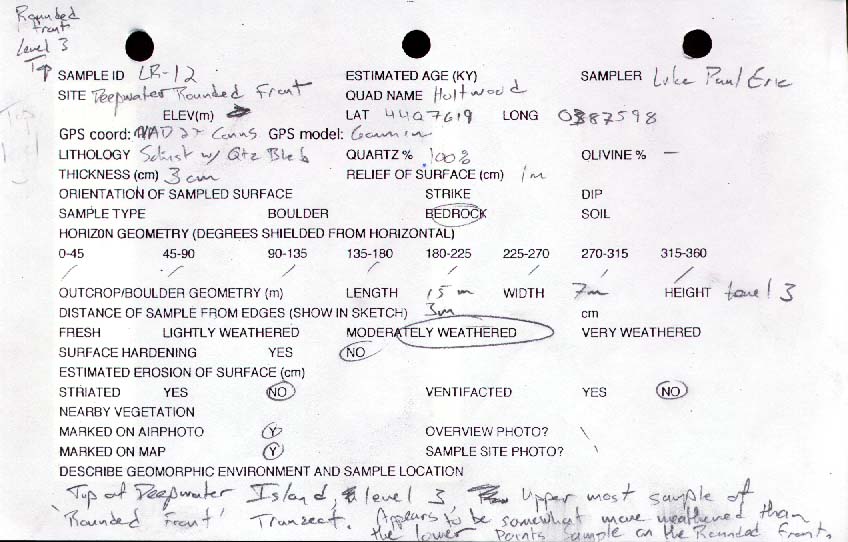 Rounded
Front
Level 3
Top
SAMPLE ID LR-12 ESTIMATED AGE (KY) SAMPLER Luke Paul Eric
SITE Deepwater Rounded Front QUAD NAME Holtwood
ELEV(m) LAT 4407619 LONG 0387598
GPS coord: NAD 27 Conus GPS model: Garmin
LITHOLOGY Schist w/ Qtz Bleb QUARTZ % 100% OLIVINE % —
THICKNESS (cm) 3 cm RELIEF OF SURFACE (cm) 1m
ORIENTATION OF SAMPLED SURFACE STRIKE DIP
SAMPLE TYPE BOULDER BEDROCK SOIL
HORIZON GEOMETRY (DEGREES SHIELDED FROM HORIZONTAL)
0-45 45-90 90-135 135-180 180-225 225-270 270-315 315-360
/ / / / / / / /
OUTCROP/BOULDER GEOMETRY (m) LENGTH 15 m WIDTH 7m HEIGHT Level 3
DISTANCE OF SAMPLE FROM EDGES (SHOW IN SKETCH) 3m cm
FRESH LIGHTLY WEATHERED MODERATELY WEATHERED VERY WEATHERED
SURFACE HARDENING YES NO
ESTIMATED EROSION OF SURFACE (cm)
STRIATED YES NO VENTIFACTED YES NO
NEARBY VEGETATION
MARKED ON AIRPHOTO Y OVERVIEW PHOTO? \
MARKED ON MAP Y SAMPLE SITE PHOTO? \
DESCRIBE GEOMORPHIC ENVIRONMENT AND SAMPLE LOCATION
Top of Deepwater Island, level 3, Upper most sample of
'Rounded Front' Transect. Appears to be somewhat more weathered than
the lower points sample on the Rounded Front.